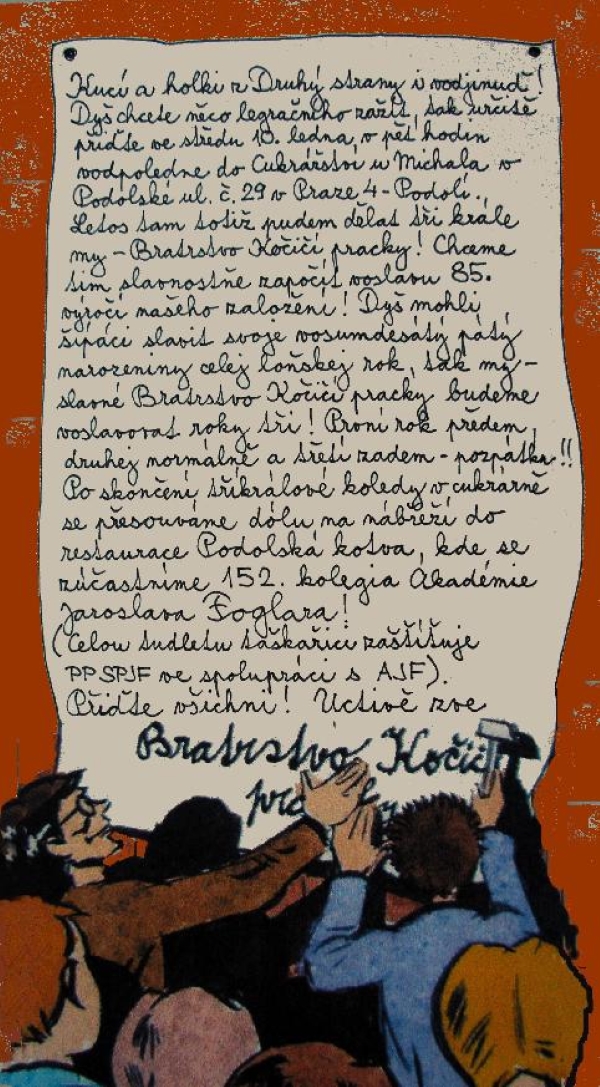 Kucí a holki z Druhý strany i vodjinuď!
Dyš chcete něco legračního zažít, tak určitě
přiďte ve středu 10. ledna, v pět hodin
vodpoledne do Cukrářství u Michala v
Podolské ul. č. 29 v Praze 4 - Podolí.
Letos tam totiž pudem dělat tři krále
my - Bratrstvo Kočičí pracky! Chceme
tím slavnostně započít voslavu 85.
výročí našeho založení! Dyš mohli
šípáci slavit svoje vosumdesátý pátý
narozeniny celej loňskej rok, tak my -
slavné Bratrstvo Kočičí pracky budeme
voslavovat roky tři! První rok předem,
druhej normálně a třetí zadem - pozpátku!!
Po skončení tříkrálové koledy v cukrárně
se přesouváme dólu na nábřeží do
restaurace Podolská kotva, kde se
zúčastníme 152. kolegia Akadémie
Jaroslava Foglara!
(Celou tudletu taškařici zaštiťuje
PPSPJF ve spolupráci s AJF).
Přiďte všichni! Uctivě zve
Bratrstvo Kočičí